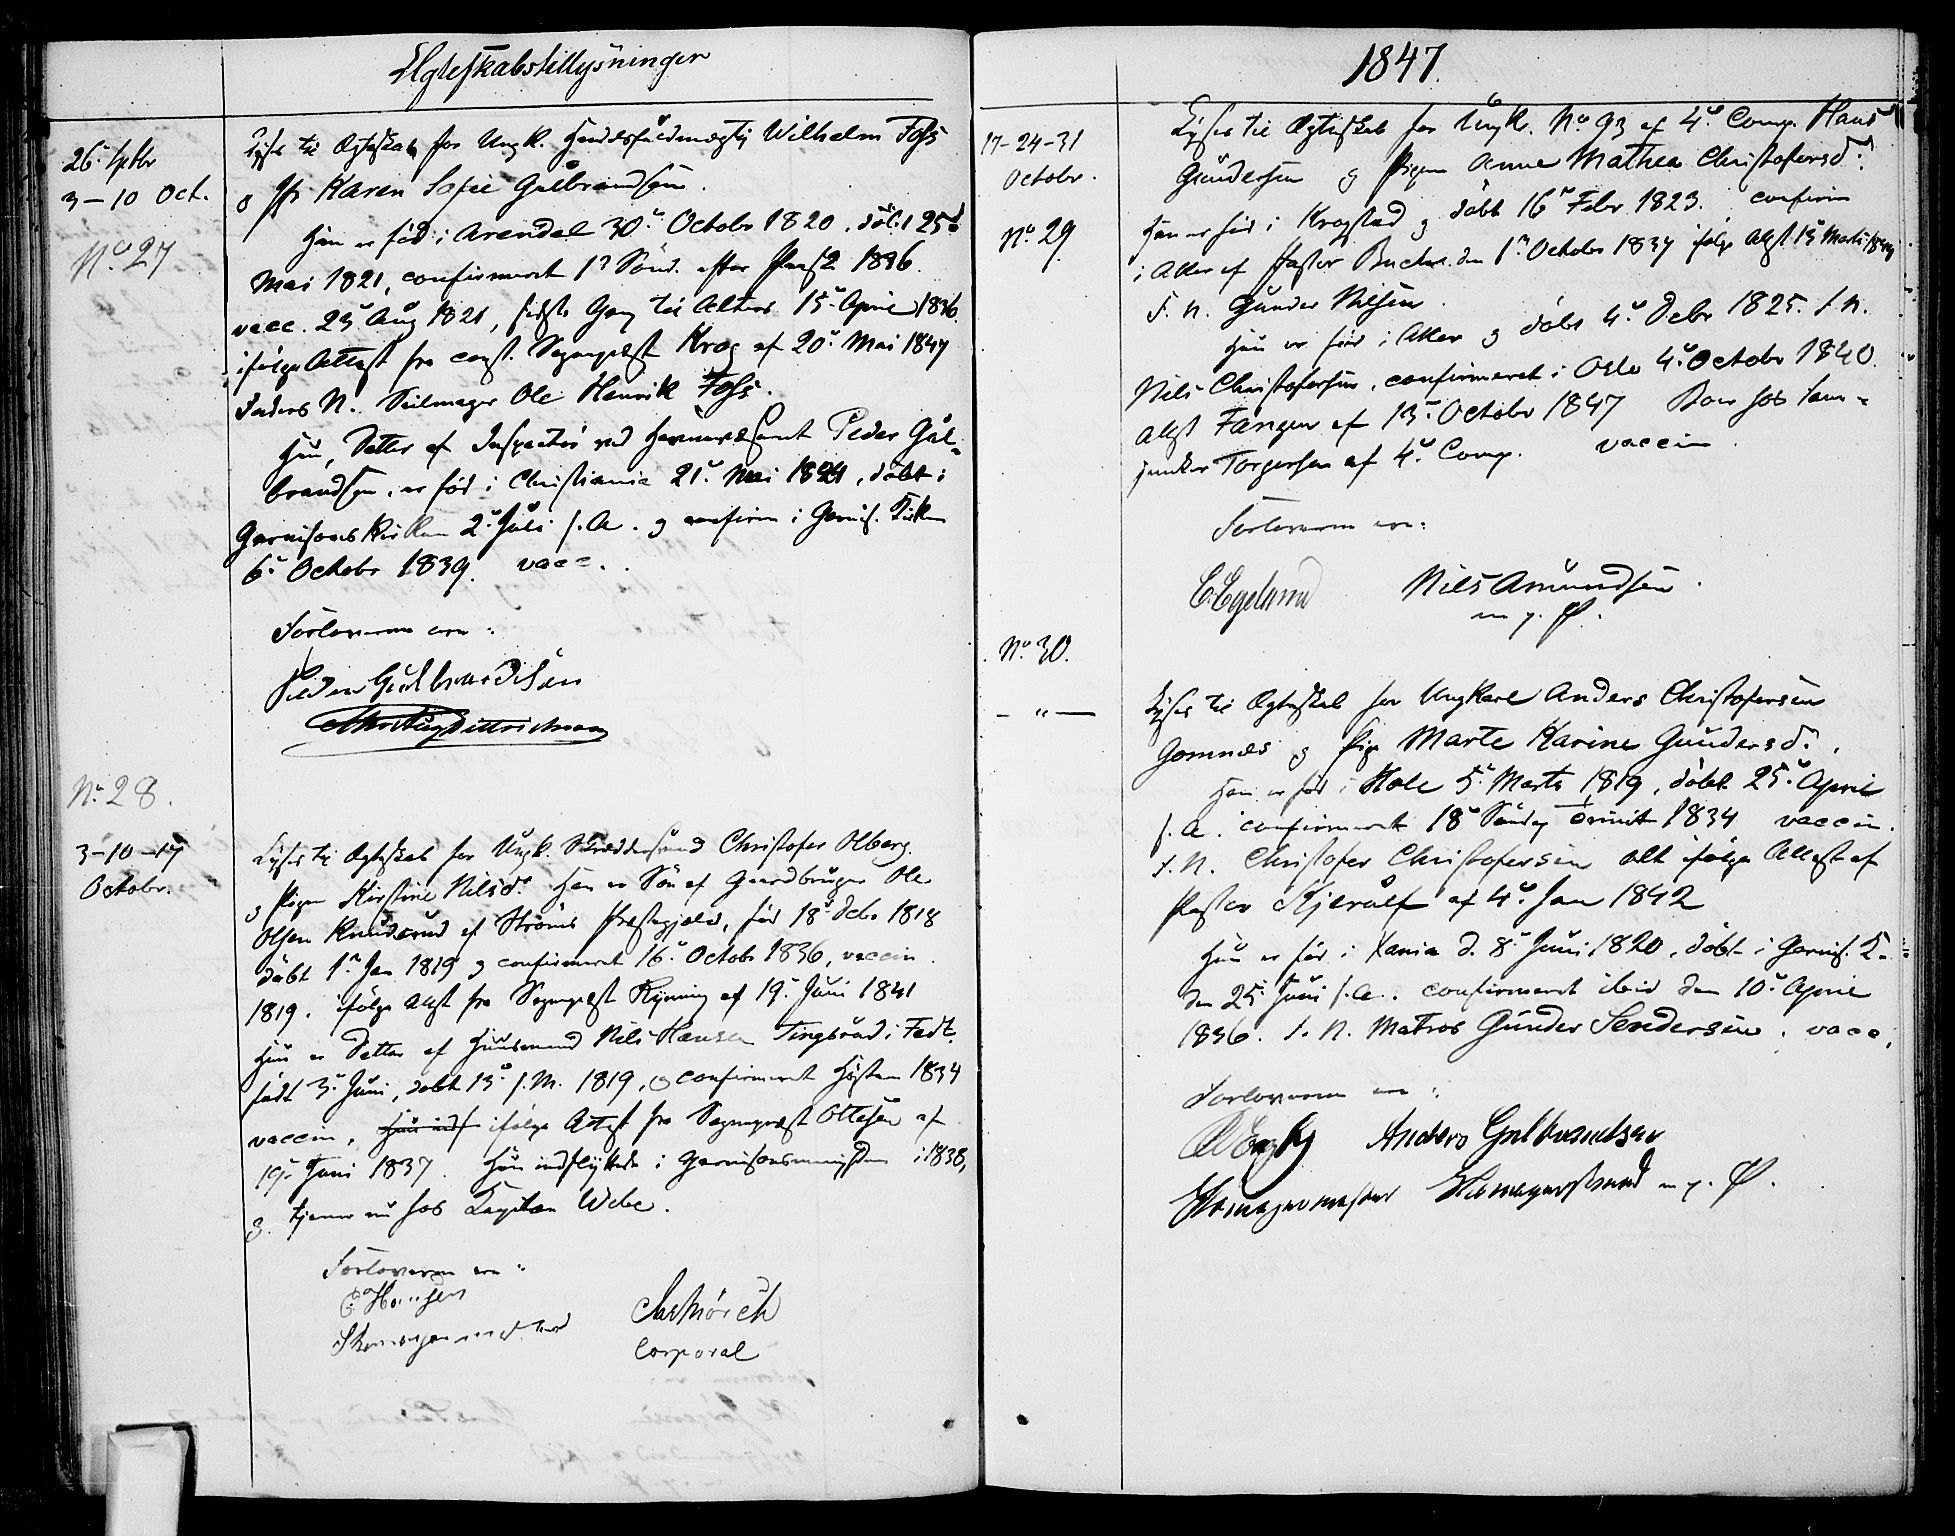 Ægteskabstillysninger
26. Septbr
3-10 Oct.
No 27
Lyses til Ægteskab for Ungk. Handelsfuldmægtig Wilhelm Foss
og Jfr Karen Sofie Gulbrandsen.
Han er född i Arendal 30. Octobr 1820, döbt 25d
Mai 1821, confirmeret 1ste Sönd. efter Paaske 1836.
vacc. 23. Aug 1821, sidste Gang til Alters 15. April 1846.
ifölge Attest fra const. Sogneprest Krog af 20. Mai 1847
Faders N. Seilmager Ole Henrik Foss.
Hun, Datter af Inspecteur ved Havnevæsenet Peder Gul-
brandsen, er född i Christiania 21. Mai 1824, döbt i
Garnisonskirken 2. Juli s. A. og confirm i Garnis. Kirken
6. Octobr 1839. vacc.
Forloverne ere:
Peder Gulbrandsen
Dittrichsen
No. 28.
3-10-17
Octobr.
Lyses til Ægteskab for Ungk. Skræddersvend Christofer Olberg
og Pigen Kirstine Nilsd. Han er Sön af Gaardbruger Ole
Olsen Knudsrud af Ströms Præstegjeld, föd 18. Debr 1818
döbt 1. Jan 1819 og confirmeret 16. Octobr 1836, vaccin
1819. ifölge Attst fra Sogneprest Rynning af 19. Juni 1841
Hun er Datter af Huusmand Nils Hansen Tingbraad i Fedt.
födt 3. Juni, döbt 13. s. M. 1819, og confirmeret Hösten 1834
vaccin, Hun indf ifölge Attest fra Sogneprest Ottesen af
19. Juni 1837. Hun indflyttede i Garnisonsmenigheden i 1838,
og tjener nu hos Kapitan Webe.
Forloverne ere:
E Hansen
Skomagermester
Corporal
1847.
17-24-31
Octobr.
No. 29
Lyses til Ægteskab for Ungk. No 93 af 4. Comp. Hans
Gundersen og Pigen Anne Mathea Christofersd.
Han er föd i Krogstad og döbt 16. Febr 1823. confirm
i Aker af Pastor Buchs den 1. October 1837 ifölge Attst 13 Marts
F. N. Gunder Nilsen
Hun er föd i Aker og döbt 4. Debr 1825. F. N.
Nils Christofersen, confirmeret i Oslo 4. Octobr 1840.
Attst Fangen af 13. Octobr 1847 Boer hos Fane-
junker Torgersen af 4. Comp. vaccin.
Forloverne ere:
C. Egeland Nils Amundsen
m. p. P.
No. 30.
- " -
Lyses til Ægteskab for Ungkarl Anders Christofersen
Gomnæs og Pige Marte Karine Gundersd.
Han er föd i Hole 5. Marts 1819, döbt 25. April
s. A. confirmeret 18. Söndag Trinit 1834 vaccin.
F. N. Christofer Christofersen alt ifölge Attest af
Pastor Kjerulf af 4. Jan 1842
Hun er föd i Xania d. 8. Juni 1820, döbt i Garnis. K.
den 25. Juni s. A. confirmeret ibid den 10. April
1836. F. N. Matros Gunder Sendersen. vacc.
Forloverne ere:
Anders Gulbrandsen
Skomagermester Skomagersvend m. p. P.